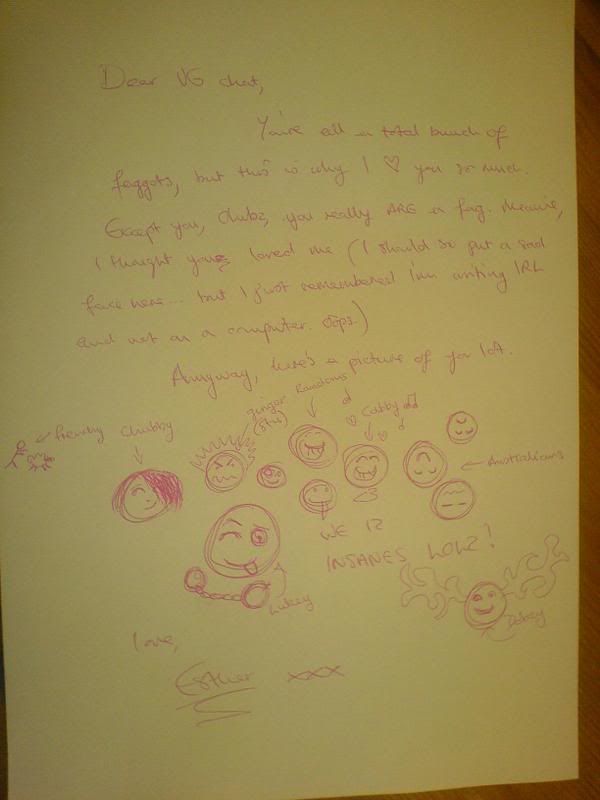 Dear VG chat,
You're all a total bunch of
faggots, but this is why I ♡ you so much.
Except you, Chubz, you really ARE a fag. Meanie,
I thought you loved me (I should so put a sad
face here... but I just remembered I'm writing IRL
and not on a computer. Oops.)
Anyway, here's a picture of you lot.
Chubby
ginger
Randoms
Catby
Australians
<3
WE IZ
INSANES LOLZ!
Lukey
Dobsy
love,
Esther xxx